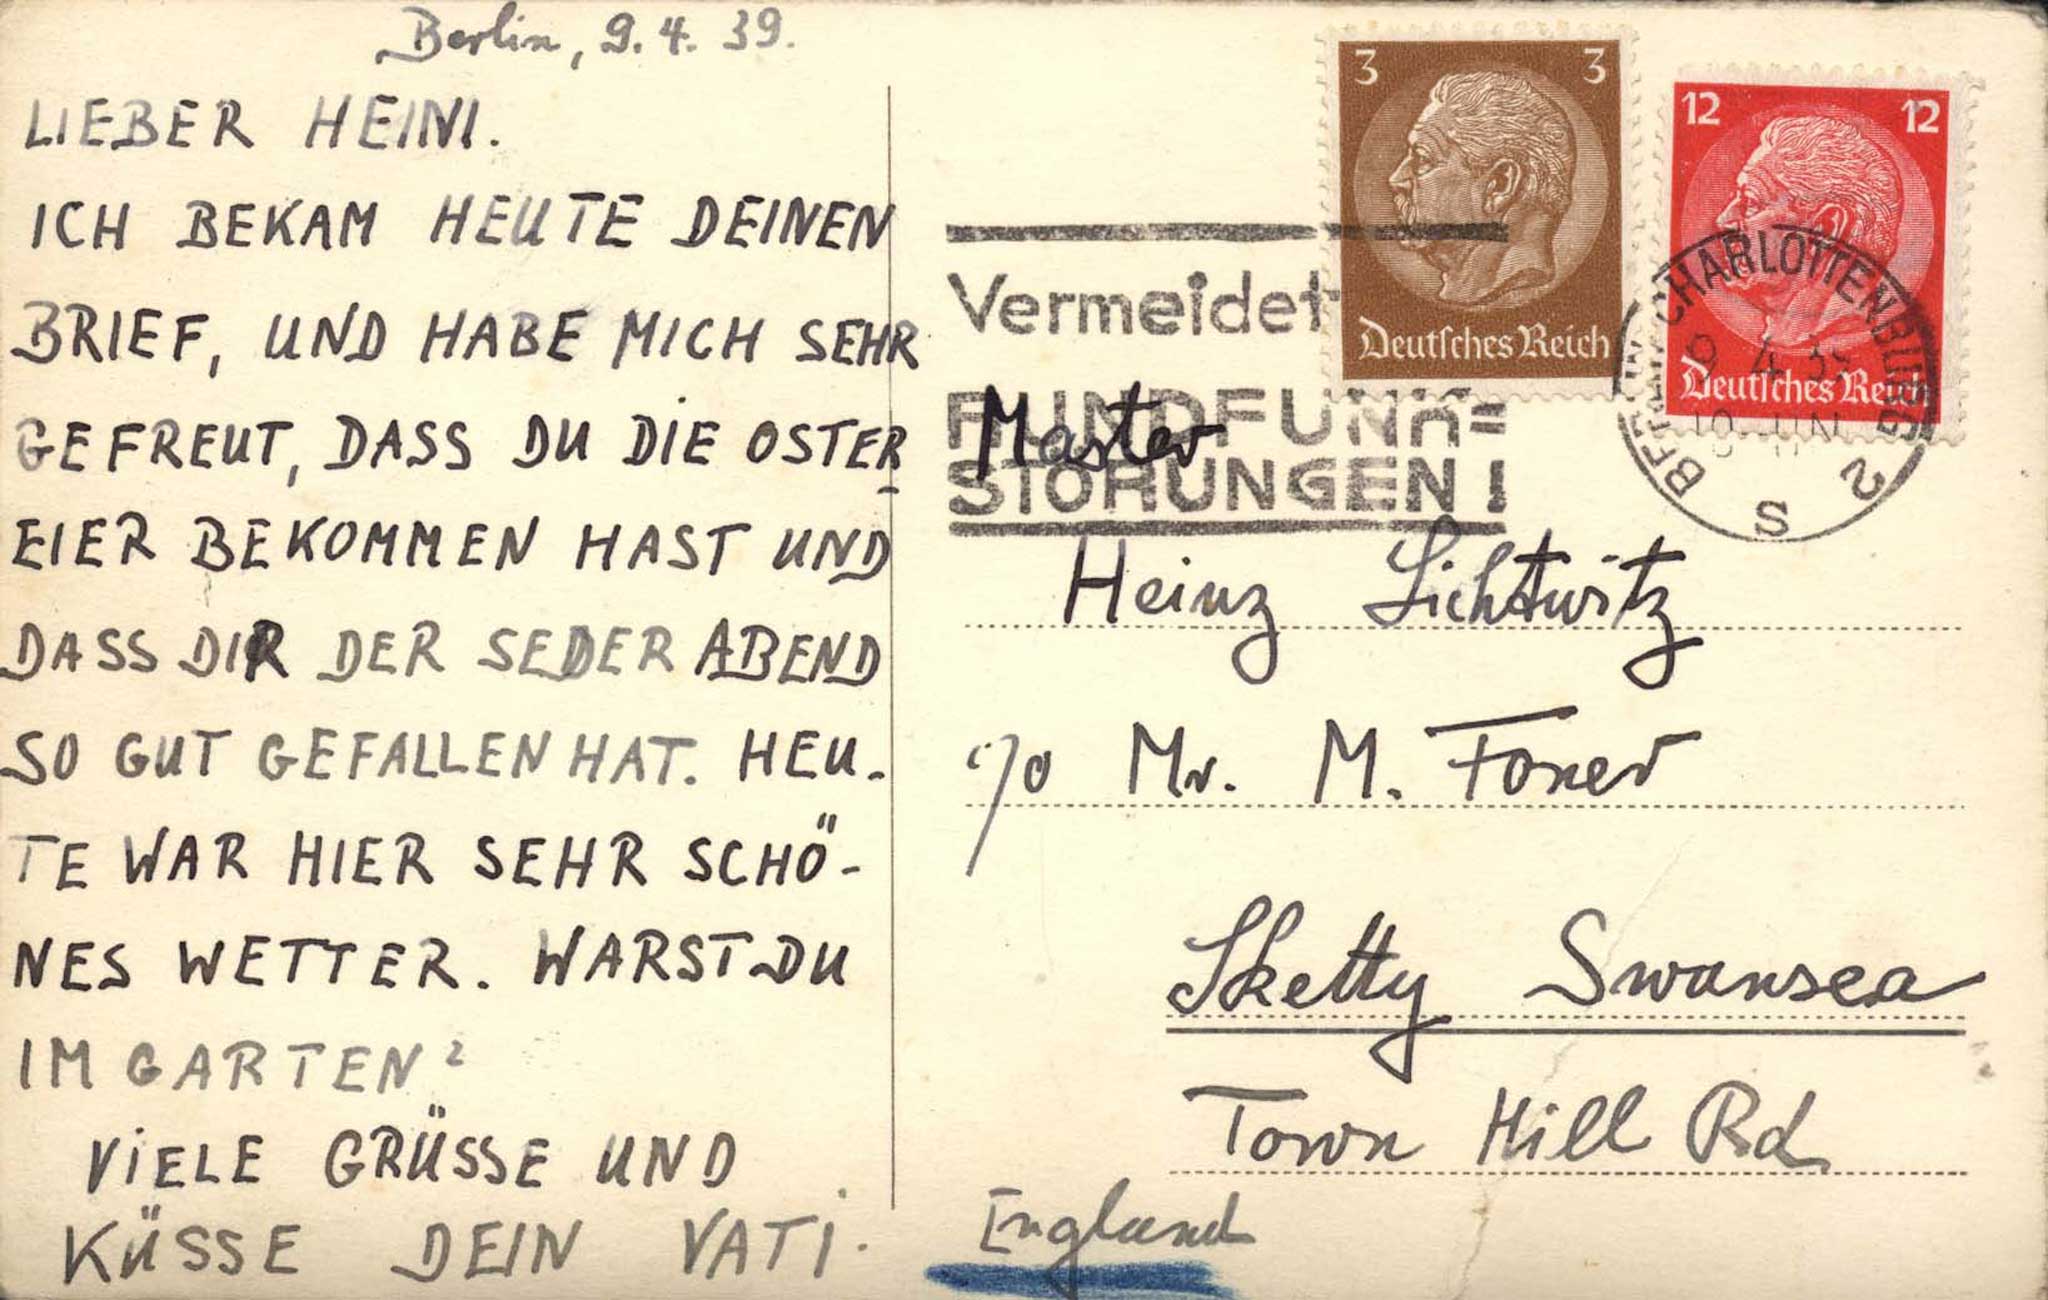 Berlin, 9.4.39.
LIEBER HEINI.
ICH BEKAM HEUTE DEINEN
BRIEF, UND HABE MICH SEHR
GEFREUT, DASS DU DIE OSTER
EIER BEKOMMEN HAST UND
DASS DIR DER SEDER ABEND
SO GUT GEFALLEN HAT. HEU-
TE WAR HIER SEHR SCHÖ-
NES WETTER. WARST DU
IM GARTEN?
VIELE GRÜSSE UND
KÜSSE DEIN VATI.
3 3
Deutsches Reich
12 12
Deutsches Reich
Vermeidet
RUNDFUNK=
STÖRUNGEN!
BERLIN-CHARLOTTENBURG 2
9.4.39
S
Master
Heinz Lichtwitz
c/o Mr. M. Foner
Sketty Swansea
Town Hill Rd
England